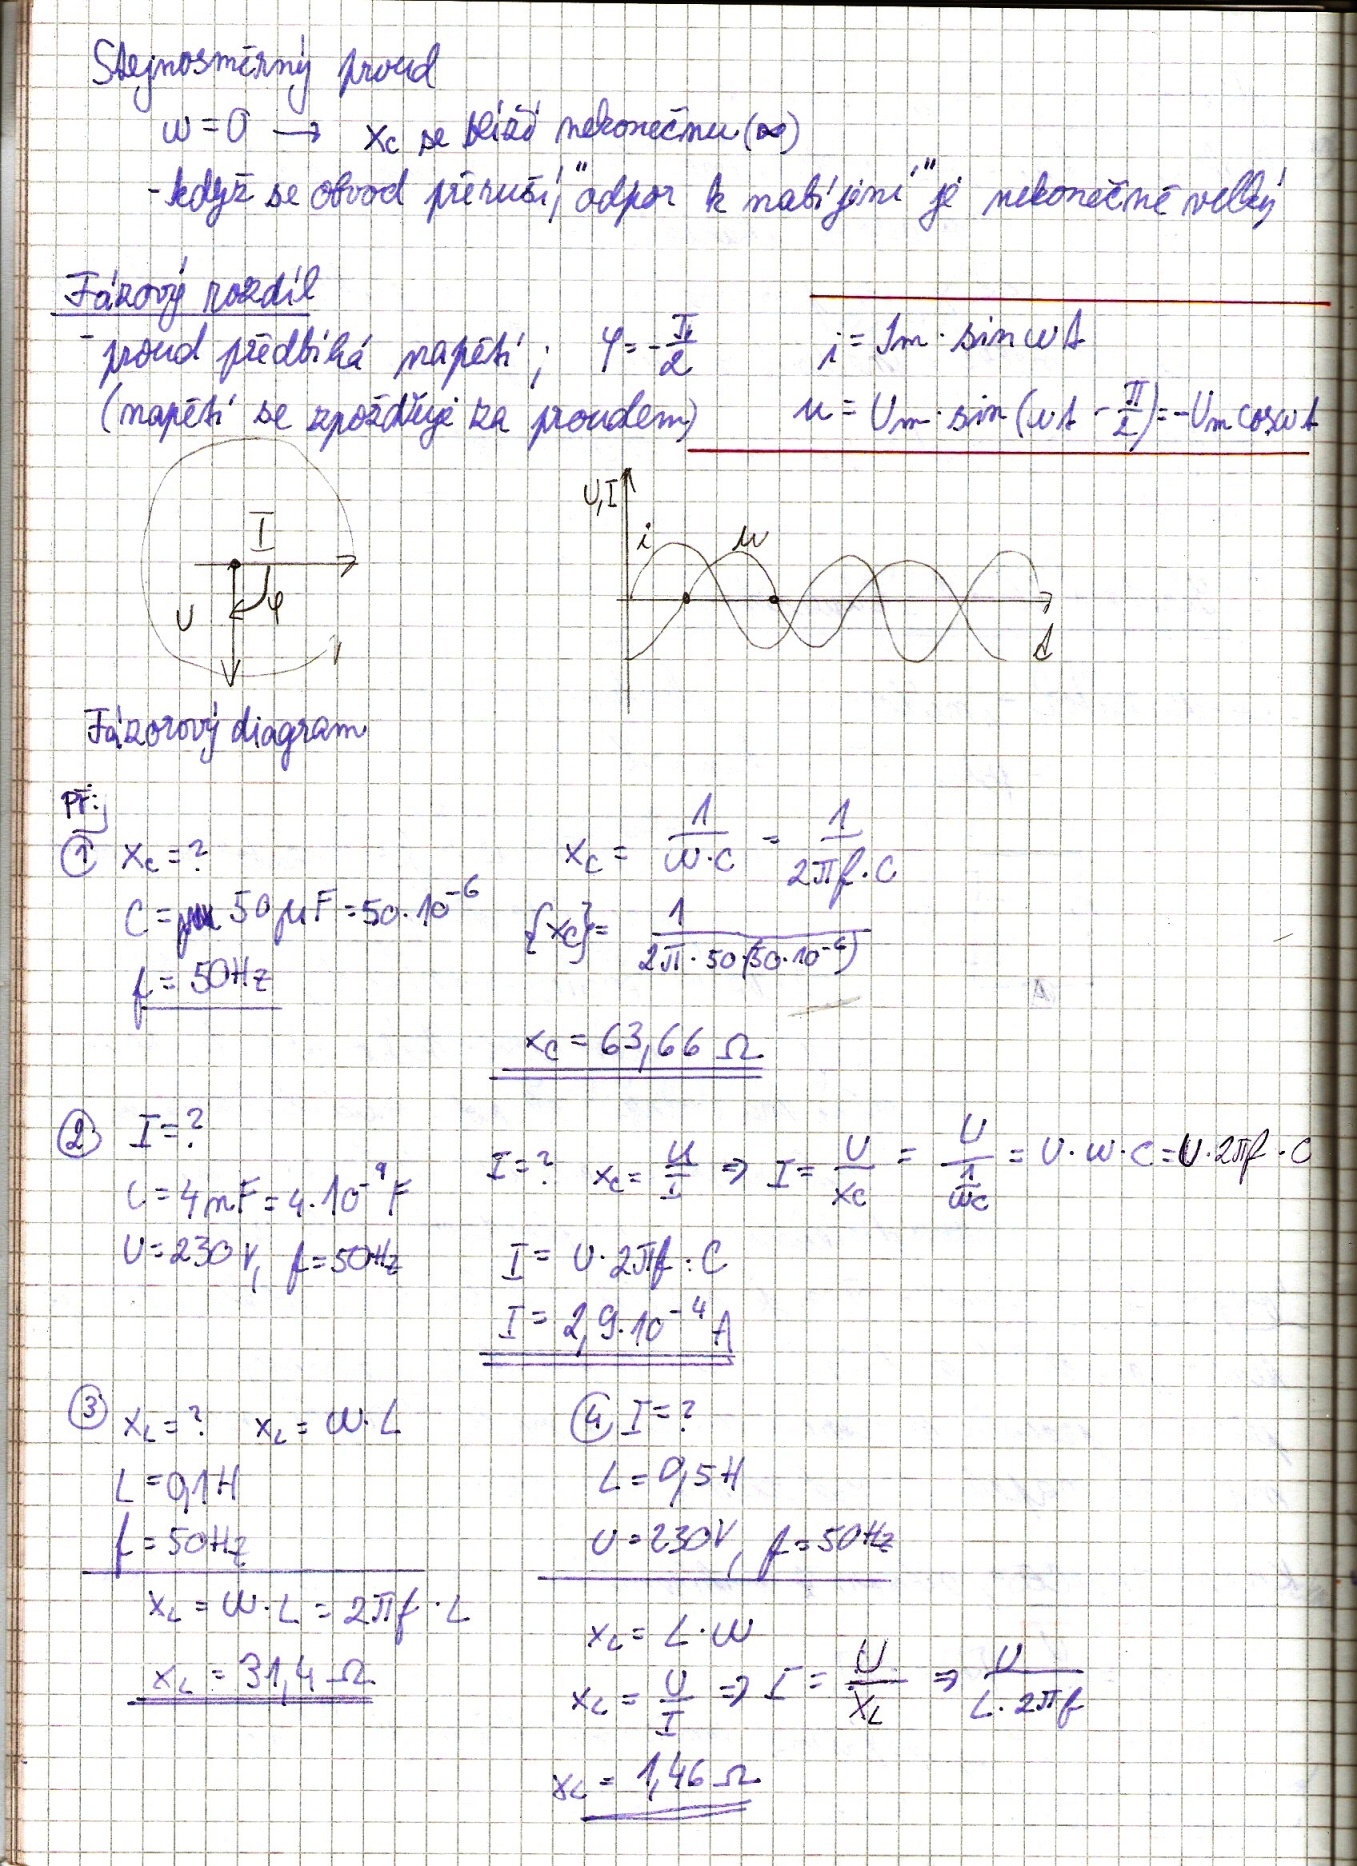 Stejnosměrný proud
ω = 0 → Xc se blíží nekonečnu (∞)
- když se obvod přeruší, "odpor k nabíjení" je nekonečně velký
Fázový rozdíl
- proud předbíhá napětí ; φ = -π/2
(napětí se zpožďuje za proudem)
i = Im · sin ωt
u = Um · sin (ωt - π/2) = -Um cos ωt
I
U
φ
Fázorový diagram
U, I
i
u
t
Př:
① Xc = ?
C = 50 μF = 50·10⁻⁶
f = 50Hz
Xc = 1/(ω·C) = 1/(2πf·C)
{Xc} = 1/(2π·50·(50·10⁻⁶))
Xc = 63,66 Ω
② I = ?
C = 4nF = 4·10⁻⁹F
U = 230V, f = 50Hz
I = ? Xc = U/I ⇒ I = U/Xc = U/(1/ωC) = U·ω·C = U·2πf·C
I = U·2πf·C
I = 2,9·10⁻⁴A
③ XL = ? XL = ω·L
L = 0,1H
f = 50Hz
XL = ω·L = 2πf·L
XL = 31,4 Ω
④ I = ?
L = 0,5H
U = 230V, f = 50Hz
XL = L·ω
XL = U/I ⇒ I = U/XL ⇒ U/(L·2πf)
XL = 1,46 Ω